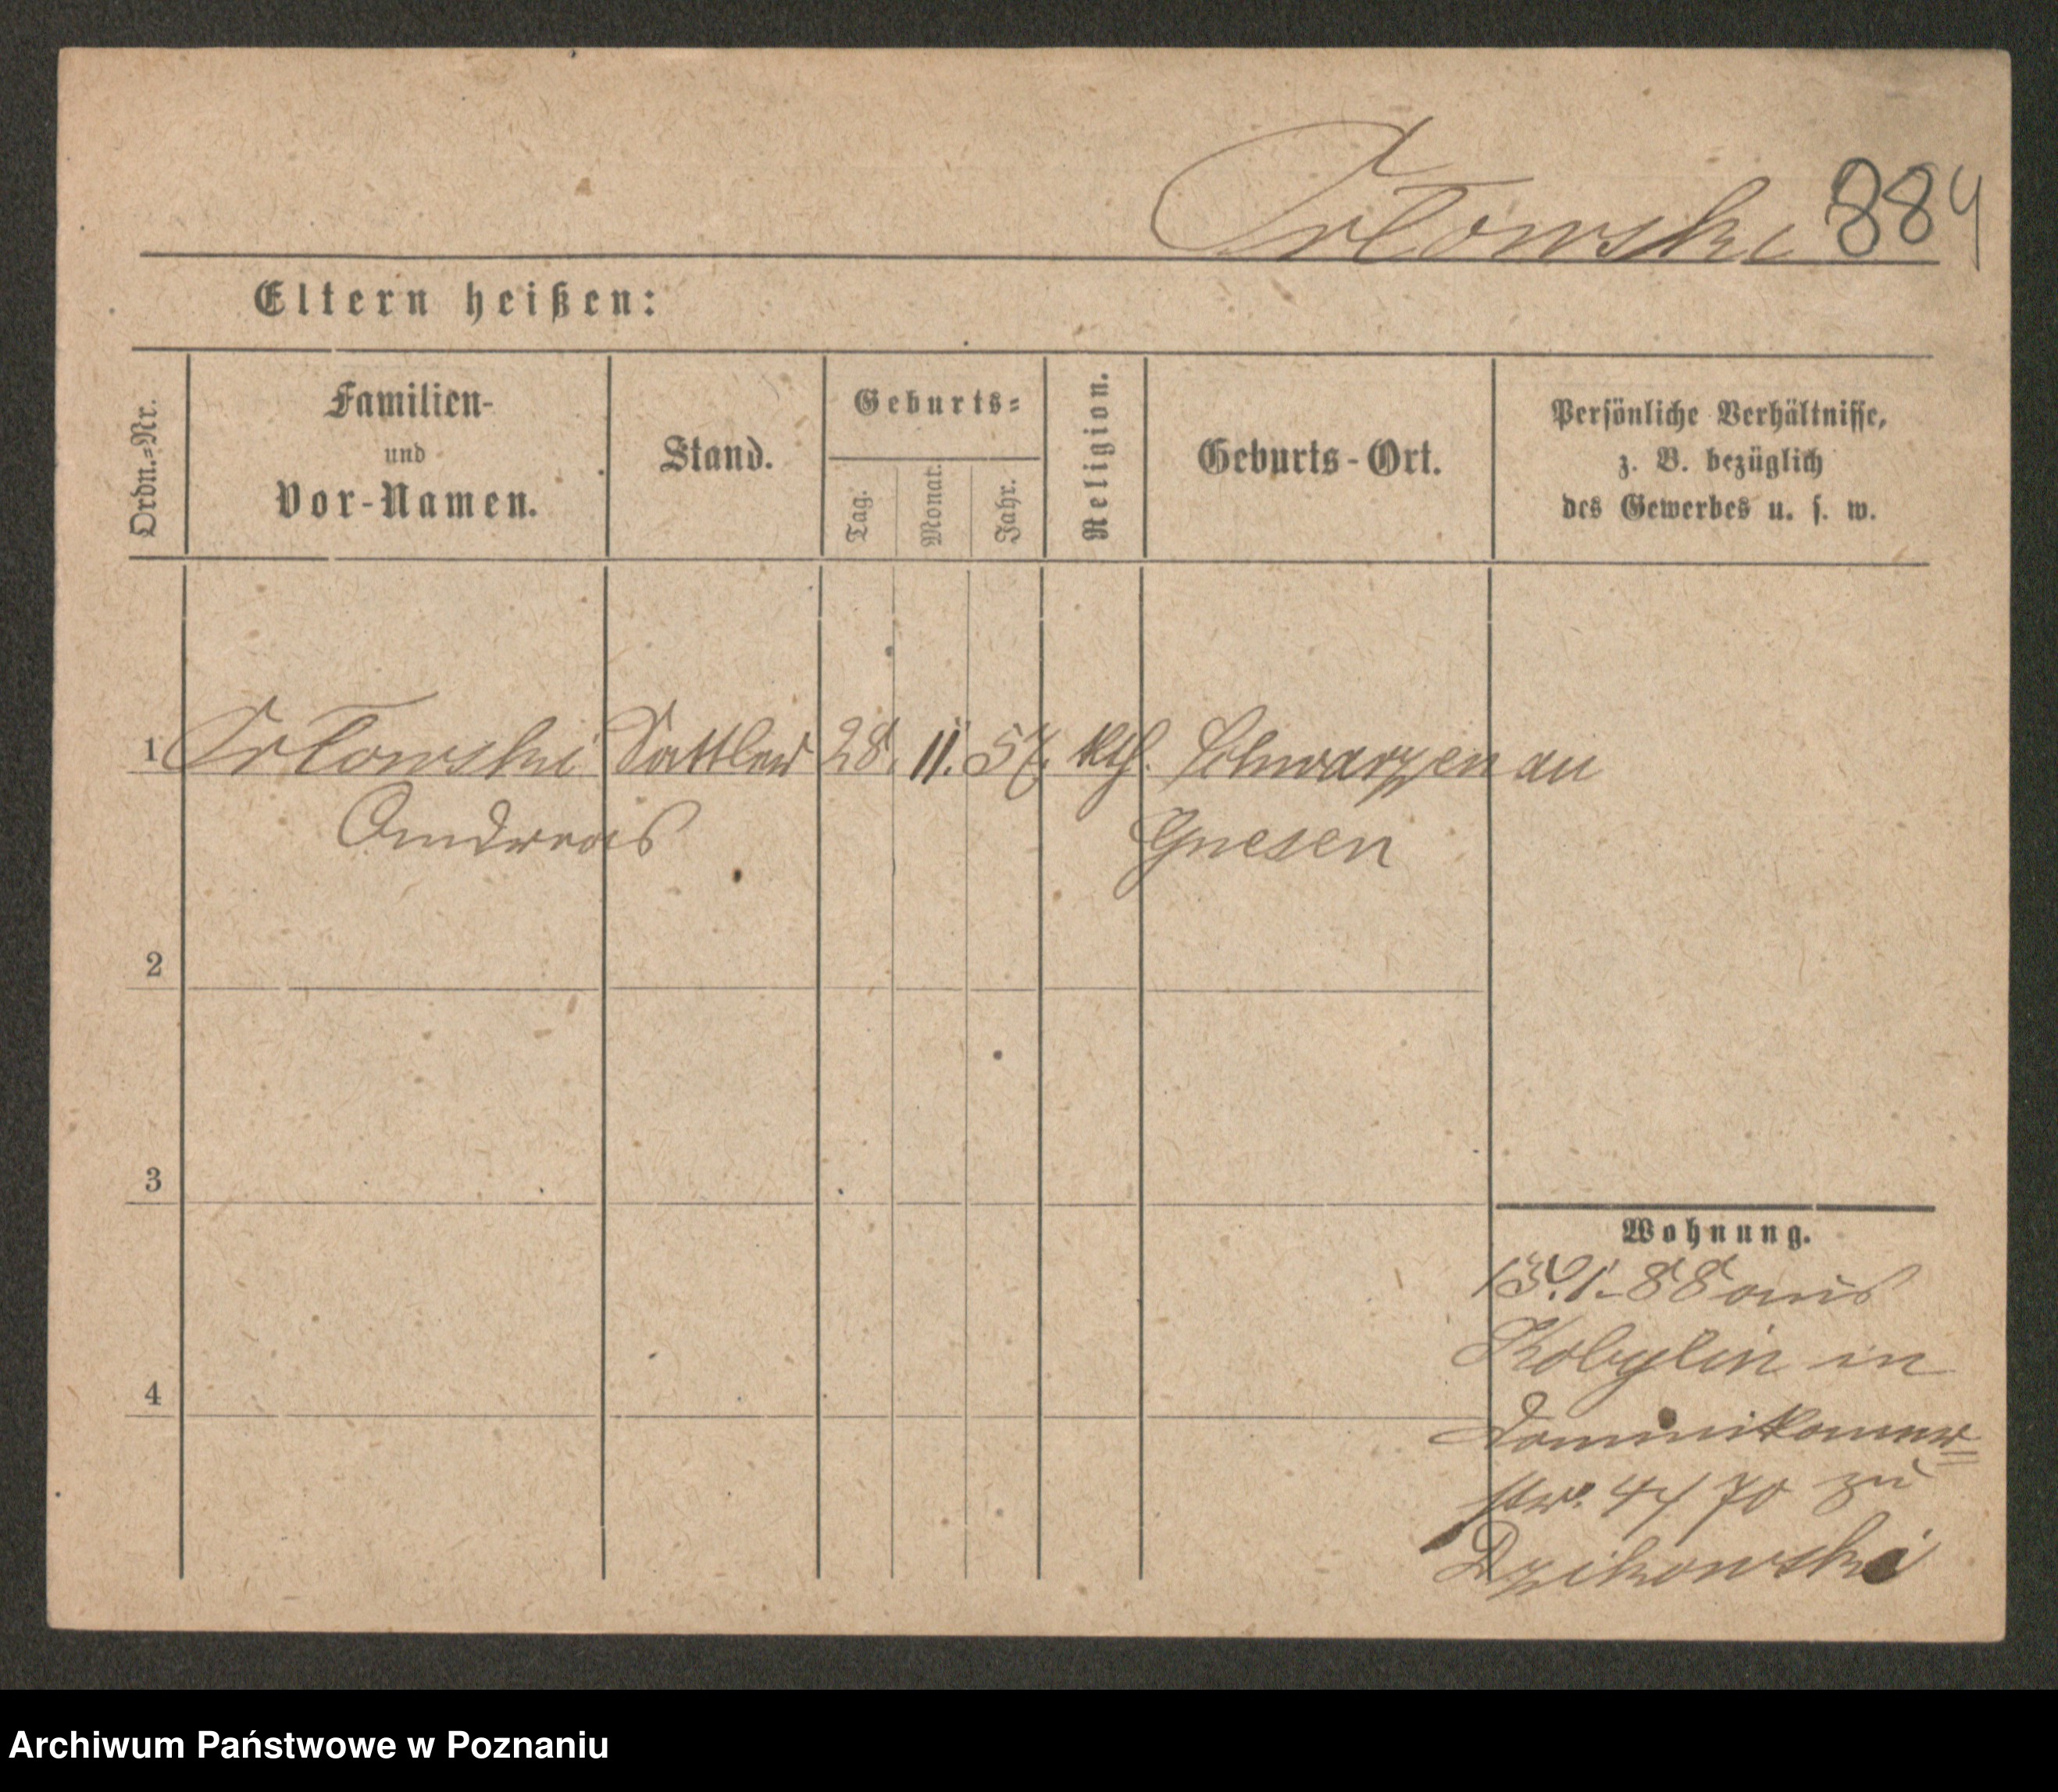 Orłowski 884
Eltern heißen:
Ordn.=Nr.
Familien-
und
Vor-Namen.
Stand.
Geburts=
Tag.
Monat.
Jahr.
Religion.
Geburts-Ort.
Persönliche Verhältnisse,
z. B. bezüglich
des Gewerbes u. s. w.
1 Orłowski Sattler 28. 11. 57. kth. Schwarzenau
Andreas Gnesen
2
3
4
Wohnung.
88 aus
Kobylin in
Dominikaner=
str. 4/ 70 zu
Dzikowski
Archiwum Państwowe w Poznaniu